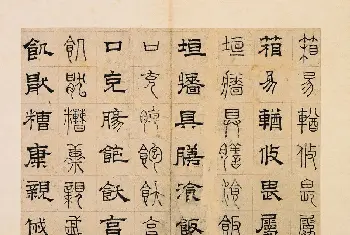 箱易輶攸畏屬
箱易輶攸畏屬
垣牆具膳飡飯
垣牆具膳飡飯
口充腸飽飫亨
口充腸飽飫亨
飢厭糟康親戚
飢厭糟康親戚